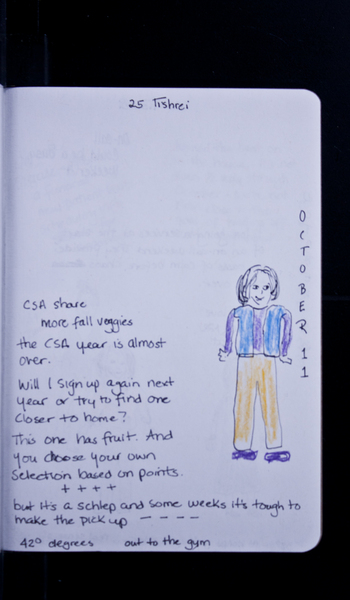 25 Tishrei
OCTOBER 11
CSA share
more fall veggies
the CSA year is almost
over.
Will I sign up again next
year or try to find one
closer to home?
This one has fruit. And
you choose your own
selection based on points.
++++
but it's a schlep and some weeks it's tough to
make the pick up – – – –
42° degrees out to the gym